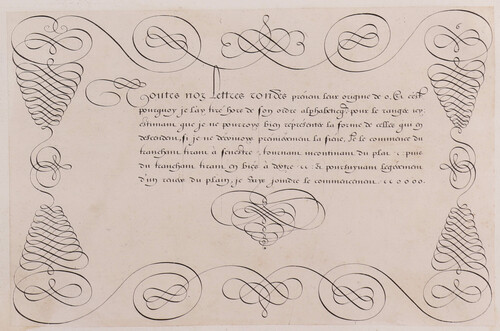 Toutes noz Lettres rondes prenan leur origine de o. Et c'est
pourquoy je l'ay tiré hors de son ordre alphabeticq. pour le ranger icy
estimant que je ne pourroye bien representer la forme de celles qui en
descendent, si je ne descrivoye premierement la siene, Or le commence du
tranchant tirant à senestre, tournant incontinant du plat : puis
du tranchant tirant en bise à dextre : & poursuyvant legerement
d'un revers du plain, je vays joindre le commencement. : o o o o.